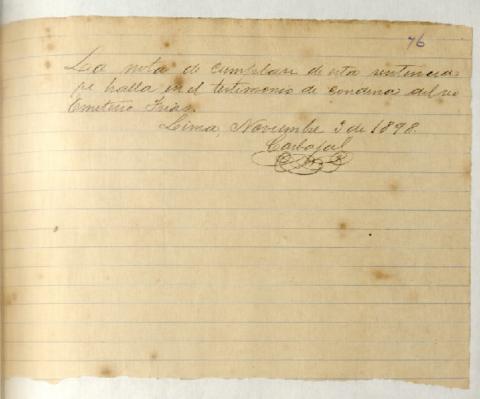 76
La nota de cumplase de esta sentencia
se halla en el testimonio de condena del reo
Emeterio Frias.
Lima, Noviembre 3 de 1898.
Carbajal